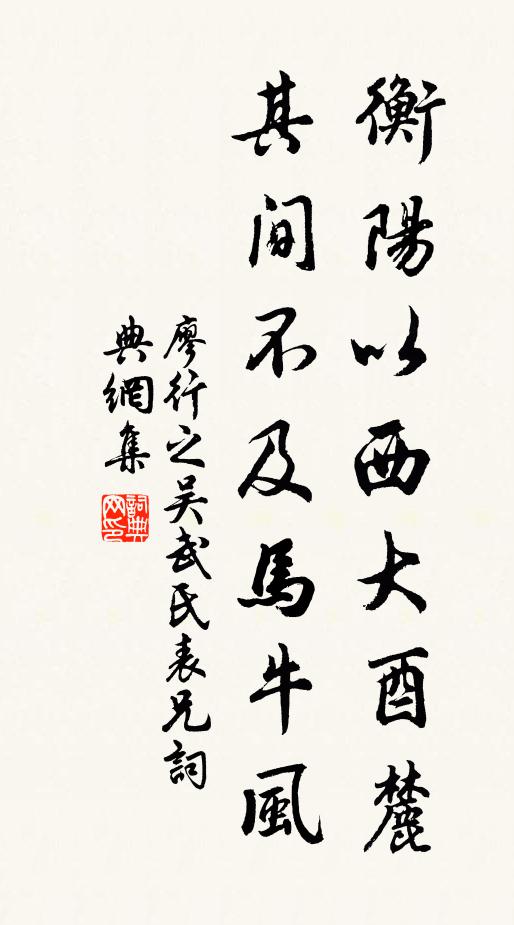 衡陽以西大酉麓
其間不及馬牛風
廖行之吴武氏表兄詞
典網集
詞典網印